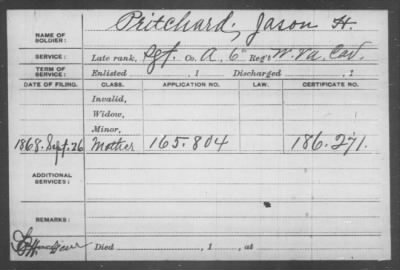 NAME OF SOLDIER: Pritchard, Jason H.
SERVICE: Late rank, Sgt. Co. A, 6" Reg't W. Va. Cav.
TERM OF SERVICE: Enlisted , 1 Discharged , 1
DATE OF FILING. CLASS. APPLICATION NO. LAW. CERTIFICATE NO.
Invalid,
Widow,
Minor,
1868. Sept. 26 Mother 165.804 186.271.
ADDITIONAL SERVICES:
REMARKS:
Died , 1 , at